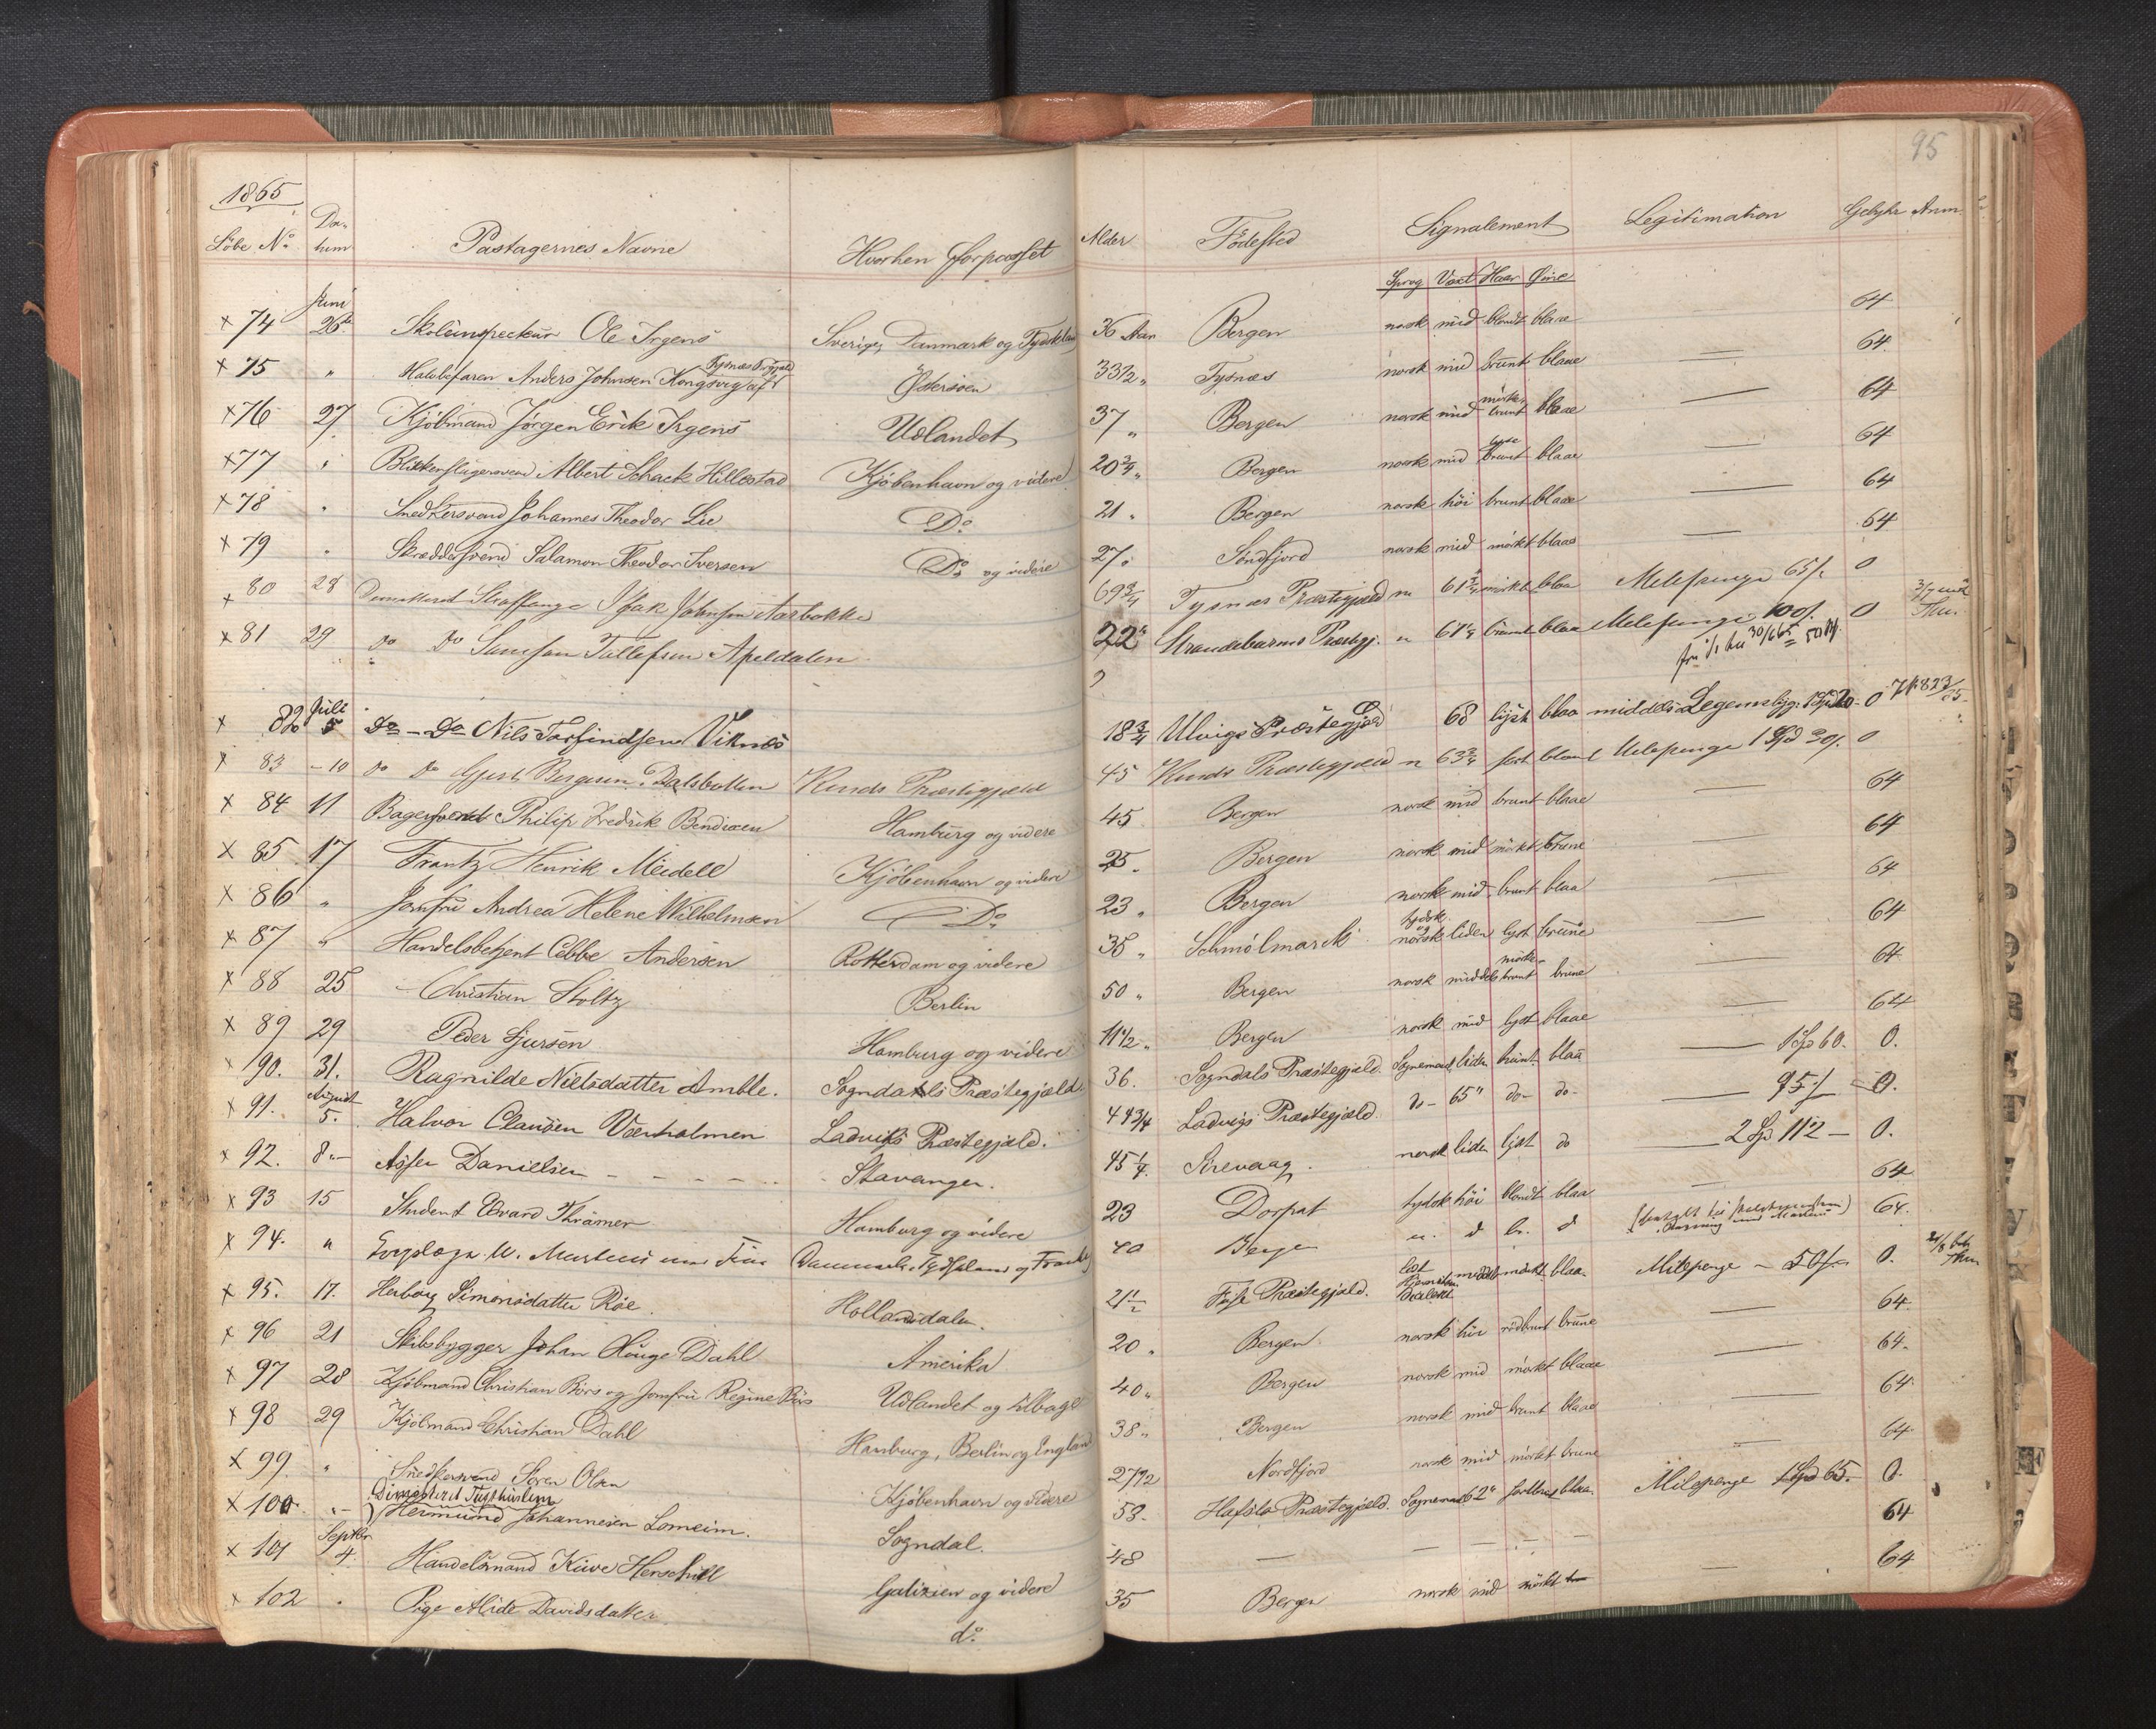 95
1865
Löbe No. Datum Passagernes Navne Hvorhen forpasset Alder Fødested Signalement Legitimation Gebyhr Anm.
Sprog Vaxt Haar Øine
Juni
x 74 26de Skoleinspecteur Ole Irgens Sverige, Danmark og Tydskland 36 Aar Bergen norsk mid blondt blaae 64
x 75 " Halvbefaren Anders Johnsen Kongsvig af Tysnæs Østersøen 33 1/2 " Tysnæs norsk mid brunt blaae — 64.
x 76 27 Kjøbmand Jørgen Erik Irgens Udlandet 37 " Bergen norsk mid mörke-brunt blaae — 64
x 77 " Blikkenslagersvend Albert Schack Hillestad Kjöbenhavn og videre 20 3/4 " Bergen norsk mid lyse brunt blaae — 64
x 78 " Snedkersvend Johannes Theodor Lie Do. 21 " Bergen norsk höi brunt blaae — 64
x 79 " Skræddersvend Salamon Theodor Iversen Do. og videre 27 " Söndfjord norsk mid mörkt blaae — 64
x 80 28 Straffange Isak Johnsen Aarbakke 69 3/4 Tysnæs Præstegjæld n 61 3/4 mörkt blaa Milepenge 65 s. 0
x 81 29 do do Samson Tollefsen Apeldalen 22 Strandebarms Præstgj. n brunt blaa Milepenge 100 s. 0
Juli
x 82 5 Do - Do Nils Torfindsen Viknæs 18 3/4 Ulvigs Præstegjæld 68 lyst blaa middels Legemsbyg. 0
x 83 - 10 do do Gjert Bergesen Dalsbotten Kinds Præstegjæld 45 Kinds Præstegjæld n 63 3/4 blaa Milepenge 1 Spd 30 s. 0
x 84 11 Bagersvend Philip Fredrik Bendixen Hamburg og videre 45 Bergen norsk mid brunt blaae — 64
x 85 17 Frantz Henrik Meidell Kjöbenhavn og videre 25 " Bergen norsk mid mörkt brune — 64
x 86 " Jomfru Andrea Helene Wilhelmsen Do. 23 " Bergen norsk mid. brunt blaa — 64
x 87 " Handelsbetjent Ebbe Andersen Rotterdam og videre 35 " Schmölmark tydsk og norsk liden lyst brune — 64
x 88 25 Christian Stoltz Berlin 50 " Bergen norsk middels mörke-brunt brune — 64
x 89 29 Peder Sjursen Hamburg og videre 11 1/2 " Bergen norsk mid lyst blaae — 64
x 90. 31. Ragnilde Nielsdatter Amble. Sogndals Præstegjæld. 36. Sogndals Præstegjæld. Sognemaal liden brunt blaa — 1 Spd 60. 0.
August
x 91. 5. Halvor Clausen Værholmen Ladviks Præstegjæld. 44 3/4 Ladvigs Præstegjæld. do - 65" do- do- — 95 s — 0.
x 92. 8 - Asser Danielsen - - - - - Stavanger. 45 1/4. Sirevaag. norsk liden lyst do — 2 Spd 112 — 0.
x 93 15 Student Edvard Thrämer Hamburg og videre 23 Dorpat tydsk höi blondt blaa — 64
x 94. " Danmark, Tydskland og Frankr. 40 Bergen n. d br. d 64.
x 95. 17. Herborg Simonsdatter Röe. Hollandsdalen. 21 1/2 Præstegjæld. middels mörkt blaa. Milepenge - 50 s 0.
x 96 21 Skibsbygger Johan Houge Dahl Amerika 20 " Bergen norsk höi rödbrunt brune — 64.
x 97 28 Kjöbmand Christian Börs og Jomfru Regine Börs Udlandet og tilbage 40 " Bergen norsk mid mörkt blaae — 64.
x 98 29 Kjöbmand Christian Dahl Hamburg, Berlin og England 38 " Bergen norsk mid brunt blaae — 64
x 99. " Snedkersvend Sören Olsen Kjöbenhavn og videre 27 1/2 Nordfjord norsk mid mörkt brune — 64
x 100. " - Dimitteret Tugthuslem Hermund Johannesen Lomeim. Sogndal. 53. Hafslo Præstegjæld. Sognemaal 62" blaa. Milepenge 1 Spd 65. - 0.
Septbr
x 101 4. Handelsmand Kiwe Herschell Galizien og videre 48 — — — — 64
x 102 " Pige Alide Davidsdatter do. 35 Bergen norsk mid mörkt — 64